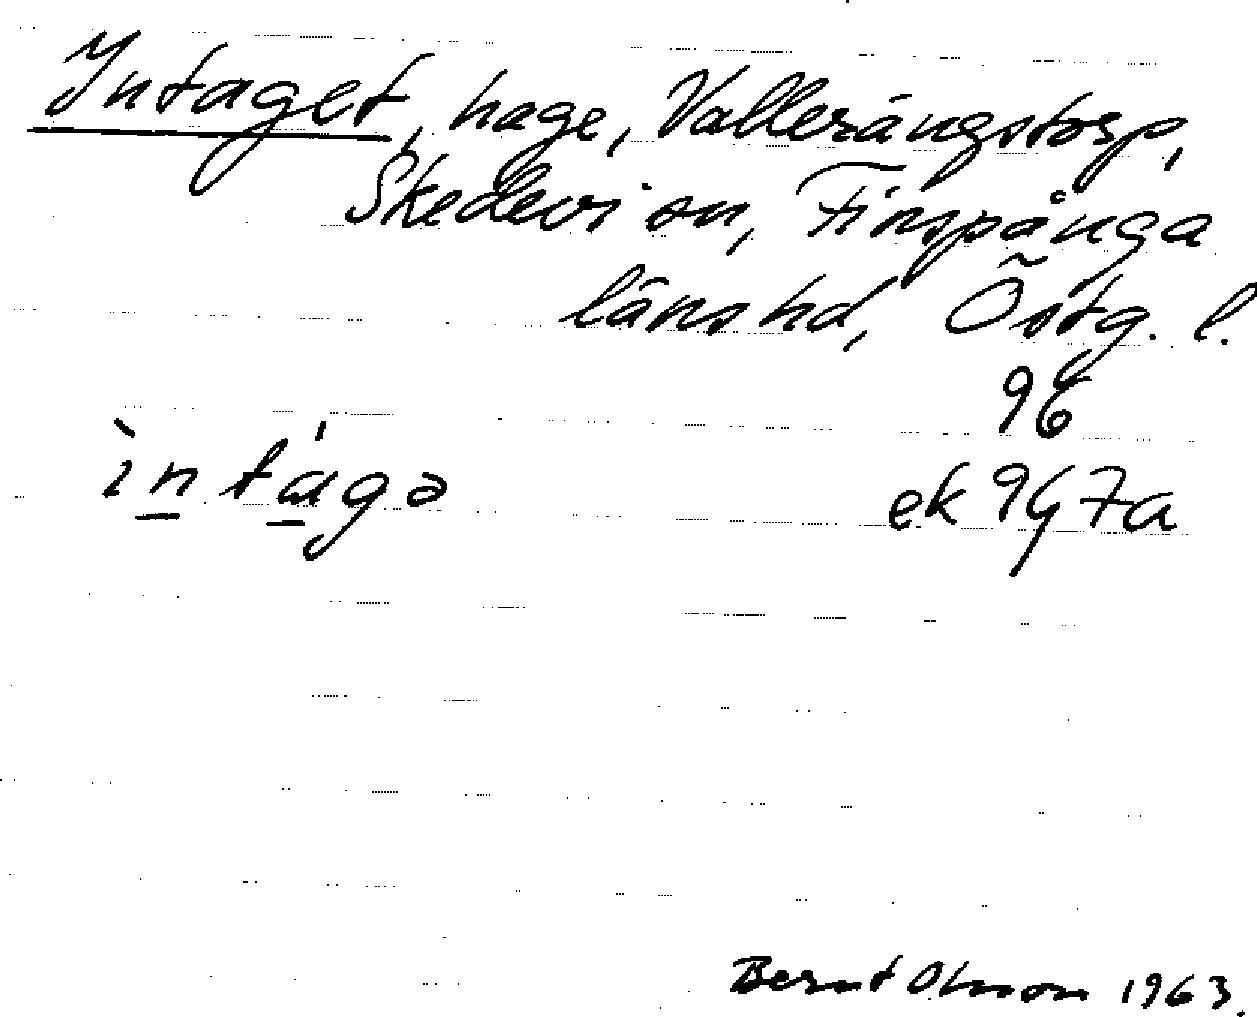 Intaget, hage, Vallerängstorp,
Skedevi sn, Finspånga
läns hd, Östg. l.
96
ìn tága ek 9G7a
Bernt Olsson 1963.